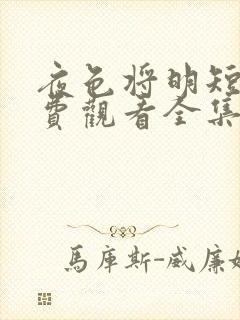 夜色将明短
費觀看全集
馬庫斯-威廉